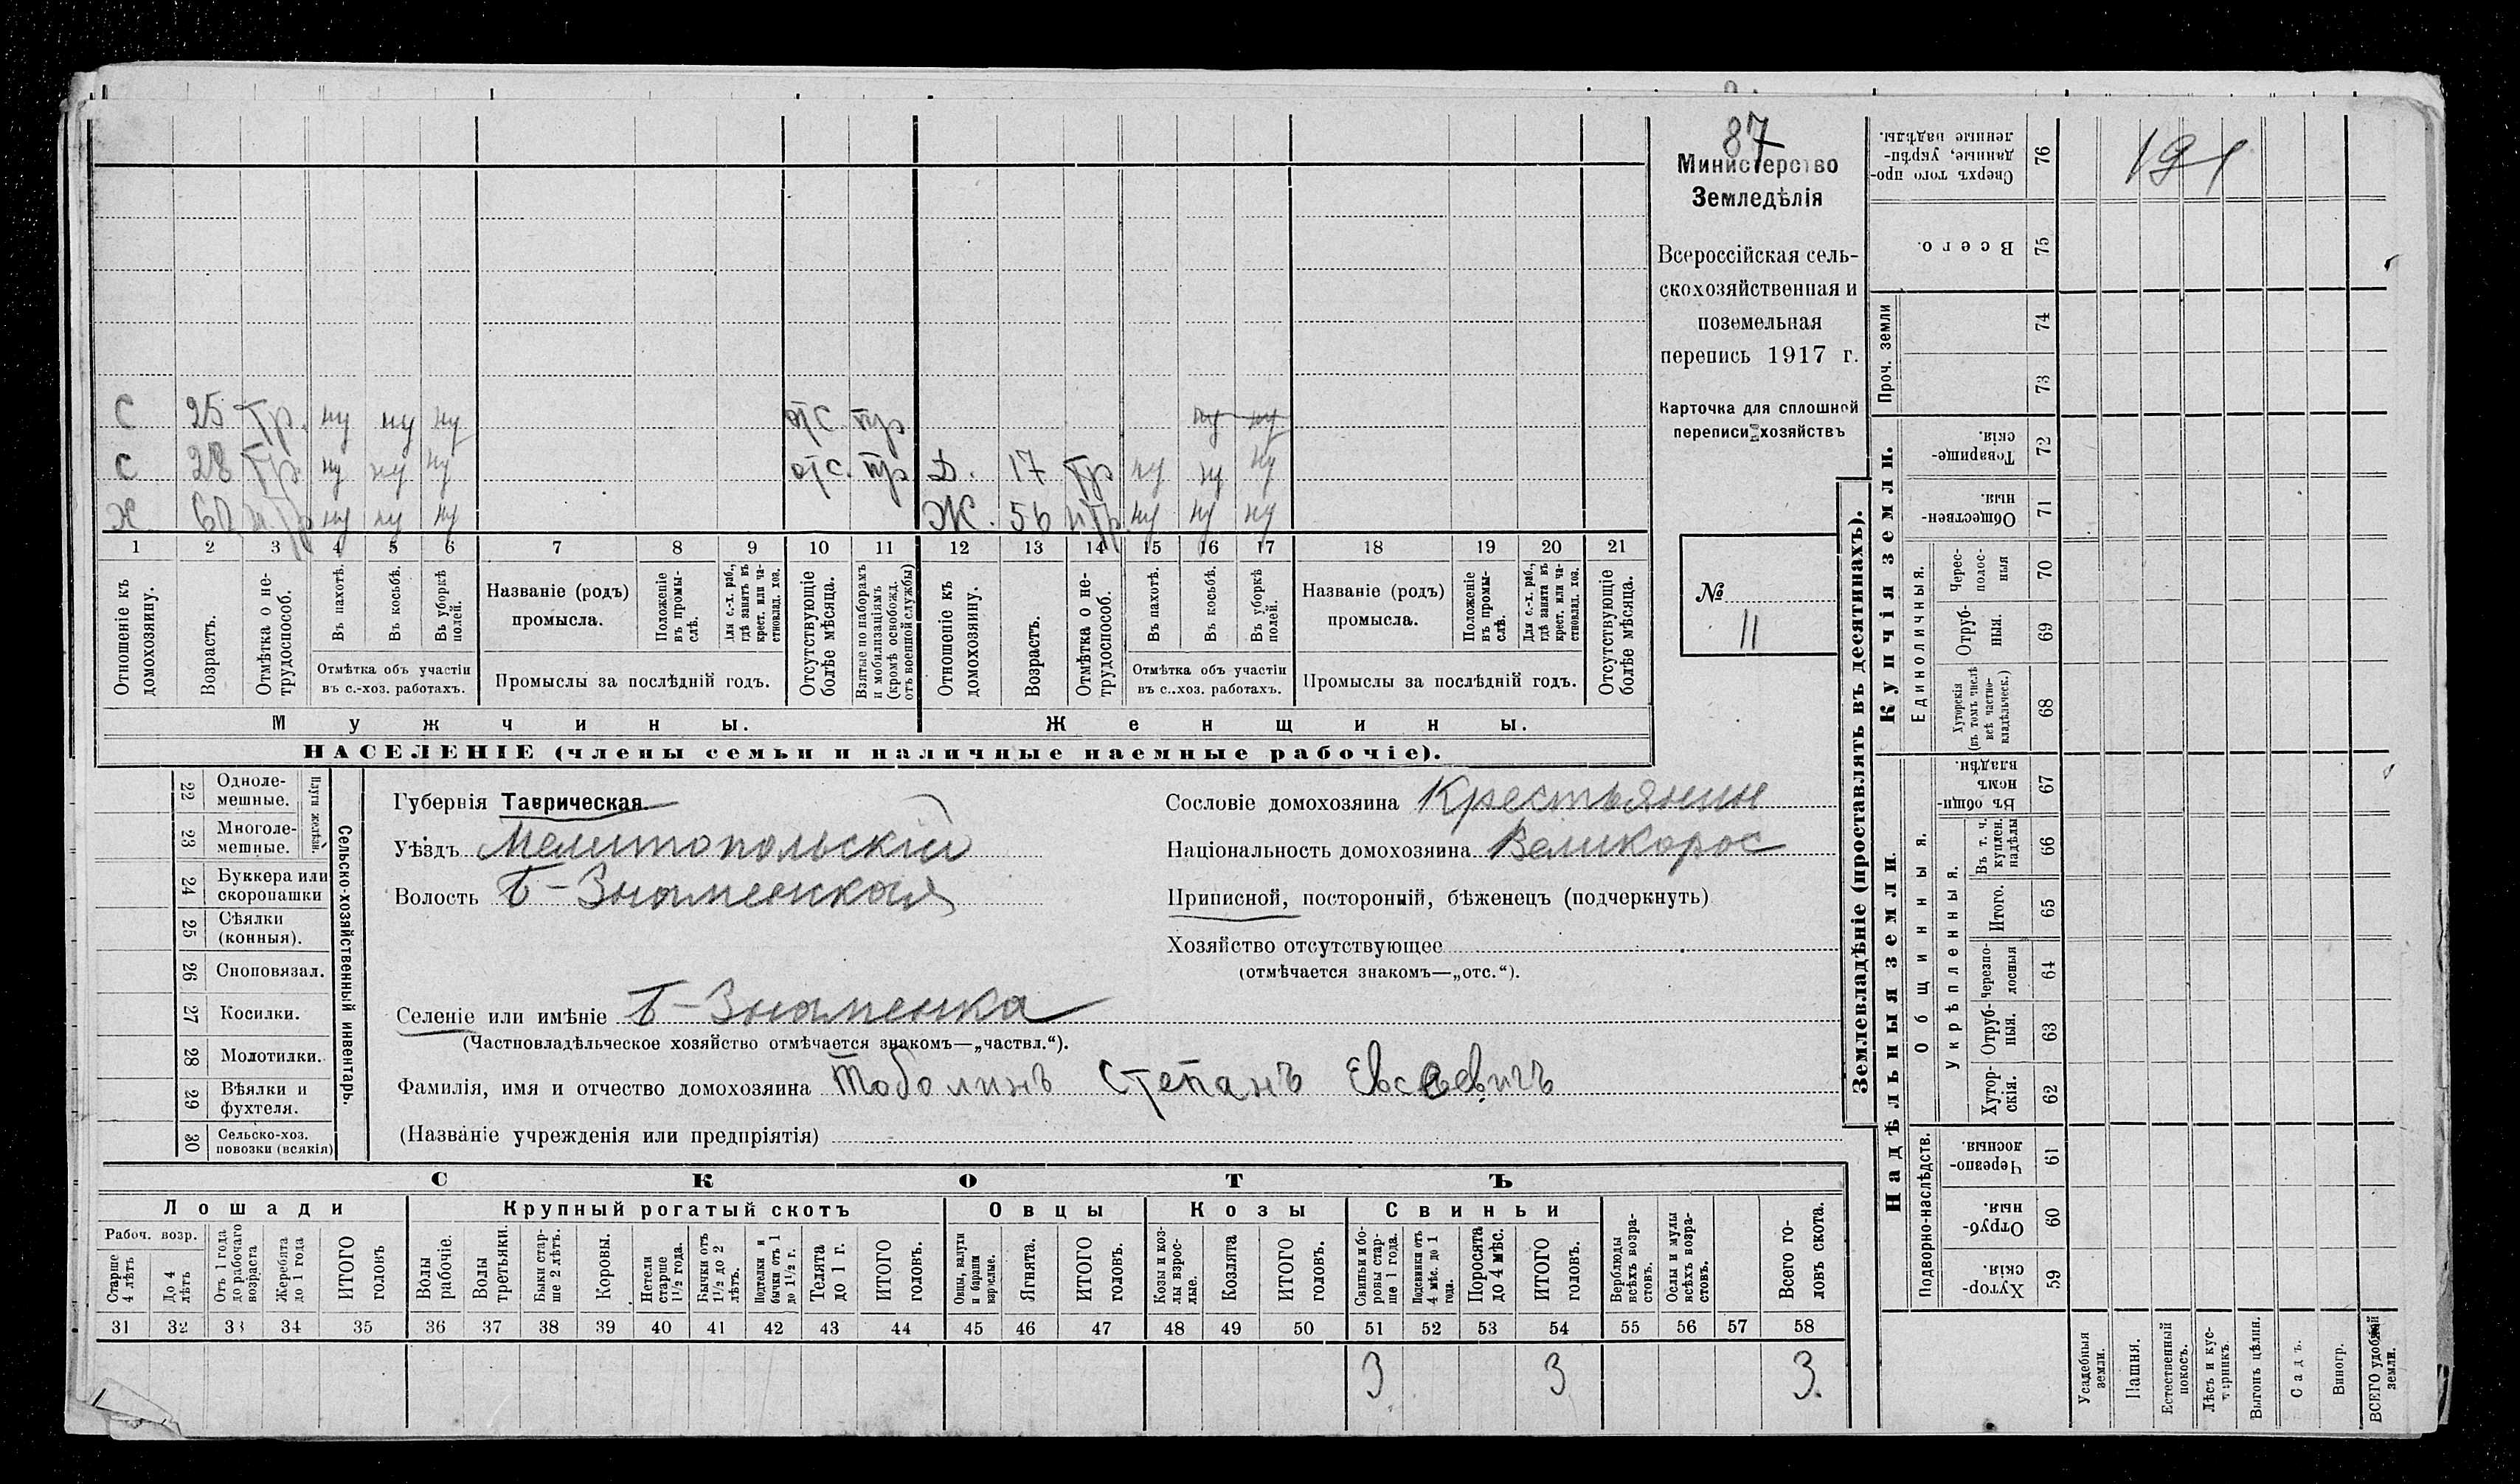 87
Министерство
Земледѣлія
Всероссійская сель-
скохозяйственная и
поземельная
перепись 1917 г.
Карточка для сплошной
переписи хозяйствъ
№
11
С 25 тр. ну ну ну отс. пр ну ну
С 28 тр. ну ну ну отс. пр Д. 17 тр ну ну ну
Х ну ну ну Ж. 56 ну ну ну
1 2 3 4 5 6 7 8 9 10 11 12 13 14 15 16 17 18 19 20 21
Отношеніе къ домохозяину.
Возрастъ.
Отмѣтка о не-трудоспособ.
Въ пахотѣ.
Въ косьбѣ.
Въ уборкѣ полей.
Отмѣтка объ участіи
въ с.-хоз. работахъ.
Названіе (родъ)
промысла.
Положеніе въ промы-слѣ.
Для с.-х. раб., гдѣ занятъ въ крест. или ча-стновлад. хоз.
Промыслы за послѣдній годъ.
Отсутствующіе болѣе мѣсяца.
Взятые по наборамъ и мобилизаціямъ (кромѣ освобожд. отъ военной службы)
Отношеніе къ домохозяину.
Возрастъ.
Отмѣтка о не-трудоспособ.
Въ пахотѣ.
Въ косьбѣ.
Въ уборкѣ полей.
Отмѣтка объ участіи
въ с..хоз. работахъ.
Названіе (родъ)
промысла.
Положеніе въ промы-слѣ.
Для с.-х. раб., гдѣ занята въ крест. или ча-стновлад. хоз.
Промыслы за послѣдній годъ.
Отсутствующіе болѣе мѣсяца.
Мужчины.
Женщины.
НАСЕЛЕНІЕ (члены семьи и наличные наемные рабочіе).
22 Одноле-мешные.
23 Многоле-мешные.
Плуги желѣзн.
24 Буккера или скоропашки
25 Сѣялки (конныя).
26 Сноповязал.
27 Косилки.
28 Молотилки.
29 Вѣялки и фухтеля.
30 Сельско-хоз. повозки (всякія)
Сельско-хозяйственный инвентарь.
Губернія Таврическая
Уѣздъ Мелитопольскій
Волость Б-Знаменская
Сословіе домохозяина Крестьянин
Національность домохозяина Великорос
Приписной, посторонній, бѣженецъ (подчеркнуть)
Хозяйство отсутствующее
(отмѣчается знакомъ—„отс.“).
Селеніе или имѣніе Б-Знаменка
(Частновладѣльческое хозяйство отмѣчается знакомъ—„частвл.“).
Фамилія, имя и отчество домохозяина Тоболинъ Степанъ Евсеевичъ
(Названіе учрежденія или предпріятія)
СКОТЪ
Лошади
Крупный рогатый скотъ
Овцы
Козы
Свиньи
Рабоч. возр.
Старше 4 лѣтъ
До 4 лѣтъ
Отъ 1 года до рабочаго возраста
Жеребята до 1 года
ИТОГО головъ
Волы рабочіе.
Волы третьяки.
Быки стар-ше 2 лѣтъ.
Коровы.
Нетели старше 1½ года.
Бычки отъ 1½ до 2 лѣтъ.
Подтелки и бычки отъ 1 до 1½ г.
Телята до 1 г.
ИТОГО головъ.
Овцы, валухи и бараны взрослые.
Ягнята.
ИТОГО головъ.
Козы и коз-лы взрос-лые.
Козлята
ИТОГО головъ.
Свиньи и бо-ровы стар-ше 1 года.
Подсвинки отъ 4 мѣс. до 1 года.
Поросята до 4 мѣс.
ИТОГО головъ.
Верблюды всѣхъ возра-стовъ.
Ослы и мулы всѣхъ возра-стовъ.
Всего го-ловъ скота.
31 32 33 34 35 36 37 38 39 40 41 42 43 44 45 46 47 48 49 50 51 52 53 54 55 56 57 58
3 3 3.
Землевладѣніе (проставлять въ десятинахъ).
Надѣльныя земли.
Купчія земли.
Проч. земли
Сверхъ того про-данные, укрѣп-ленные надѣлы. 76
191
Всего. 75
74
73
Товарище-скія. 72
Обществен-ныя. 71
Единоличныя.
Черес-полос-ныя 70
Отруб-ныя. 69
Хуторскія (въ томъ числѣ всѣ частно-владѣльческ.) 68
Общинныя.
Въ общи-номъ владѣн. 67
Укрѣпленныя.
Въ т. ч. куплен. надѣлы 66
Итого. 65
Черезпо-лосныя 64
Отруб-ныя. 63
Хутор-скія. 62
Подворно-наслѣдств.
Черезпо-лосныя 61
Отруб-ныя 60
Хутор-скія. 59
Усадебныя земли.
Пашня.
Естественный покосъ.
Лѣсъ и кус-тарникъ.
Выгонъ цѣлин.
Садъ.
Виногр.
ВСЕГО удобной земли.